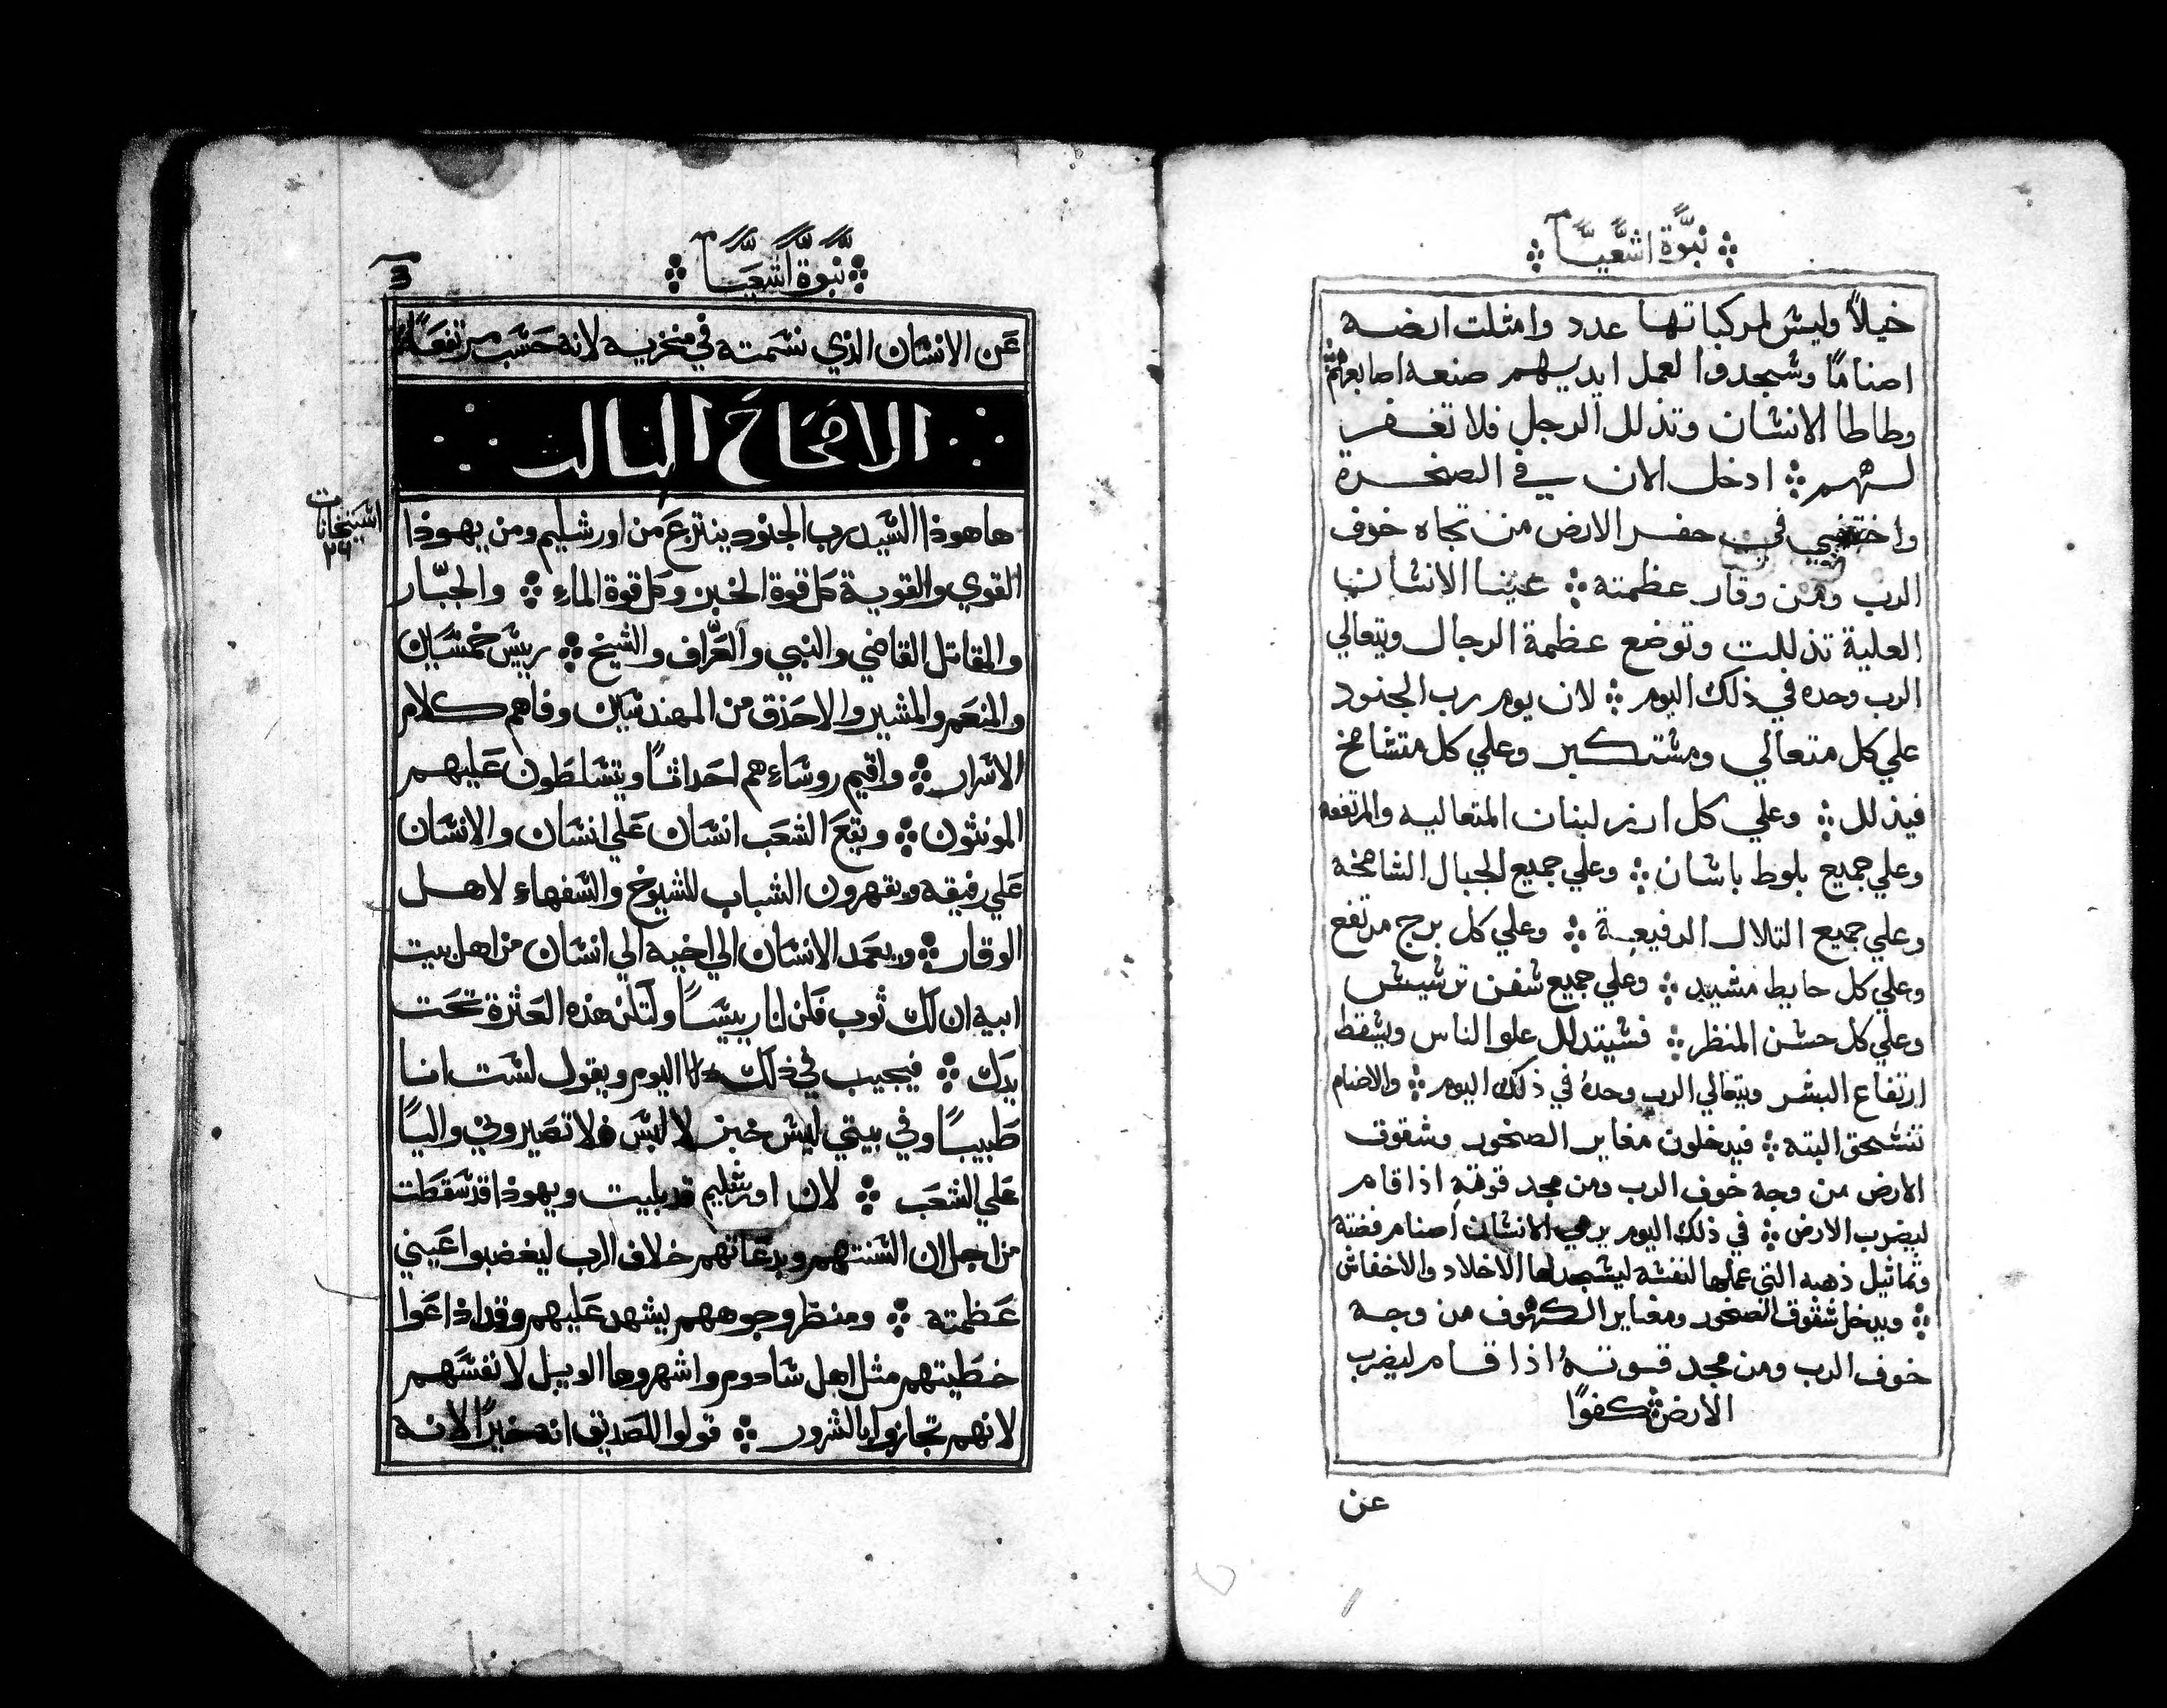 نبوّة اشعيا
خيلاً وليش لمركباتها عدد وامثلت ارضه
اصنامًا وشجدوا لعمل ايديهم صنعه اصابعهم
وطاطا الانشان وتذلل الرجل فلا تغفر
لهم ܀ ادخل الان في الصخرة
واختبي في حفر الارض من تجاه خوف
الرب ومن وقار عظمته ܀ عينا الانشان
العلية تذللت وتوضع عظمة الرجال ويتعالي
الرب وحده في ذلك اليوم ܀ لان يوم رب الجنود
علي كل متعالي ومشتكبر وعلي كل متشامخ
فيذلل ܀ وعلي كل ارز لبنان المتعاليه والمرتفعه
وعلي جميع بلوط باشان ܀ وعلي جميع الجبال الشامخة
وعلي جميع التلال الرفيعة ܀ وعلي كل برج مرتفع
وعلي كل حايط مشيد ܀ وعلي جميع شفن ترشيش
وعلي كل حشن المنظر ܀ فشيتدلل علو الناس ويشقط
ارتفاع البشر ويتعالي الرب وحده في ذلك اليوم ܀ والاصنام
تنشحق البته ܀ فيدخلون مغاير الصخور وشقوق
الارض من وجه خوف الرب ومن مجد قوته اذا قام
ليضرب الارض ܀ في ذلك اليوم يرمي الانشان اصنام فضته
وتماثيل ذهبه التي عملها لنفشه ليشجد لها الاخلاد والاخفاش
܀ ويدخل شقوق الصخور ومغاير الكهوف من وجه
خوف الرب ومن مجد قوتهُ اذا قام ليضرب
الارض ܀ كفوًا
عن
نبوة اشعيا
3
عَن الانشان الذي نشمته في منخريه لانه حَشَب مرتفعًا
الاصحاح الثالث
اشبخانات
٢٦
ها هوذا الشيد رب الجنود ينتزع من اورشليم ومن يهوذا
القوي والقوية كل قوة الخبز وكل قوة الماءِ ܀ والجبّار
والمقاتل القاضي والنبي والعَرّاف والشيخ ܀ رييش خمشين
والمنعم والمشير والاحَذق من المهندشين وفاهم كلام
الاشرار ܀ واقيم روشاءهم احَداثًا ويتشلطون عَليهم
المونثون ܀ ويقعَ الشعَب انشان عَلي انشان والانشان
عَلي رفيقه ويقهرون الشباب للشيوخ والشفهاء لاهل
الوقار ܀ ويعمَد الانشان الي اخيه الي انشان من اهل بيت
ابيه ان لك ثوب فكن لنا رييشًا ولتكن هذه العَثرة تحَت
يدك ܀ فيجيب في ذلك اليوم ويقول لشت انا
طَبيبًا وفي بيتي ليش خبز لا لبش فلا تصَيروني واليًا
عَلي الشعَب ܀ لان اورشليم قد بليت ويهوذا قد شقطَت
من اجل ان الشنتهم وبدعَاتهم خلاف الرب ليغضبوا عَيني
عَظمته ܀ ومنظر وجوههم يشهد عَليهم وقد اذاعَوا
خطَيتهم مثل اهل شادوم واشهروها الويل لانفشهم
لانهم تجازوا بالشرور ܀ قولوا للصَديق انه خيرًا لانه